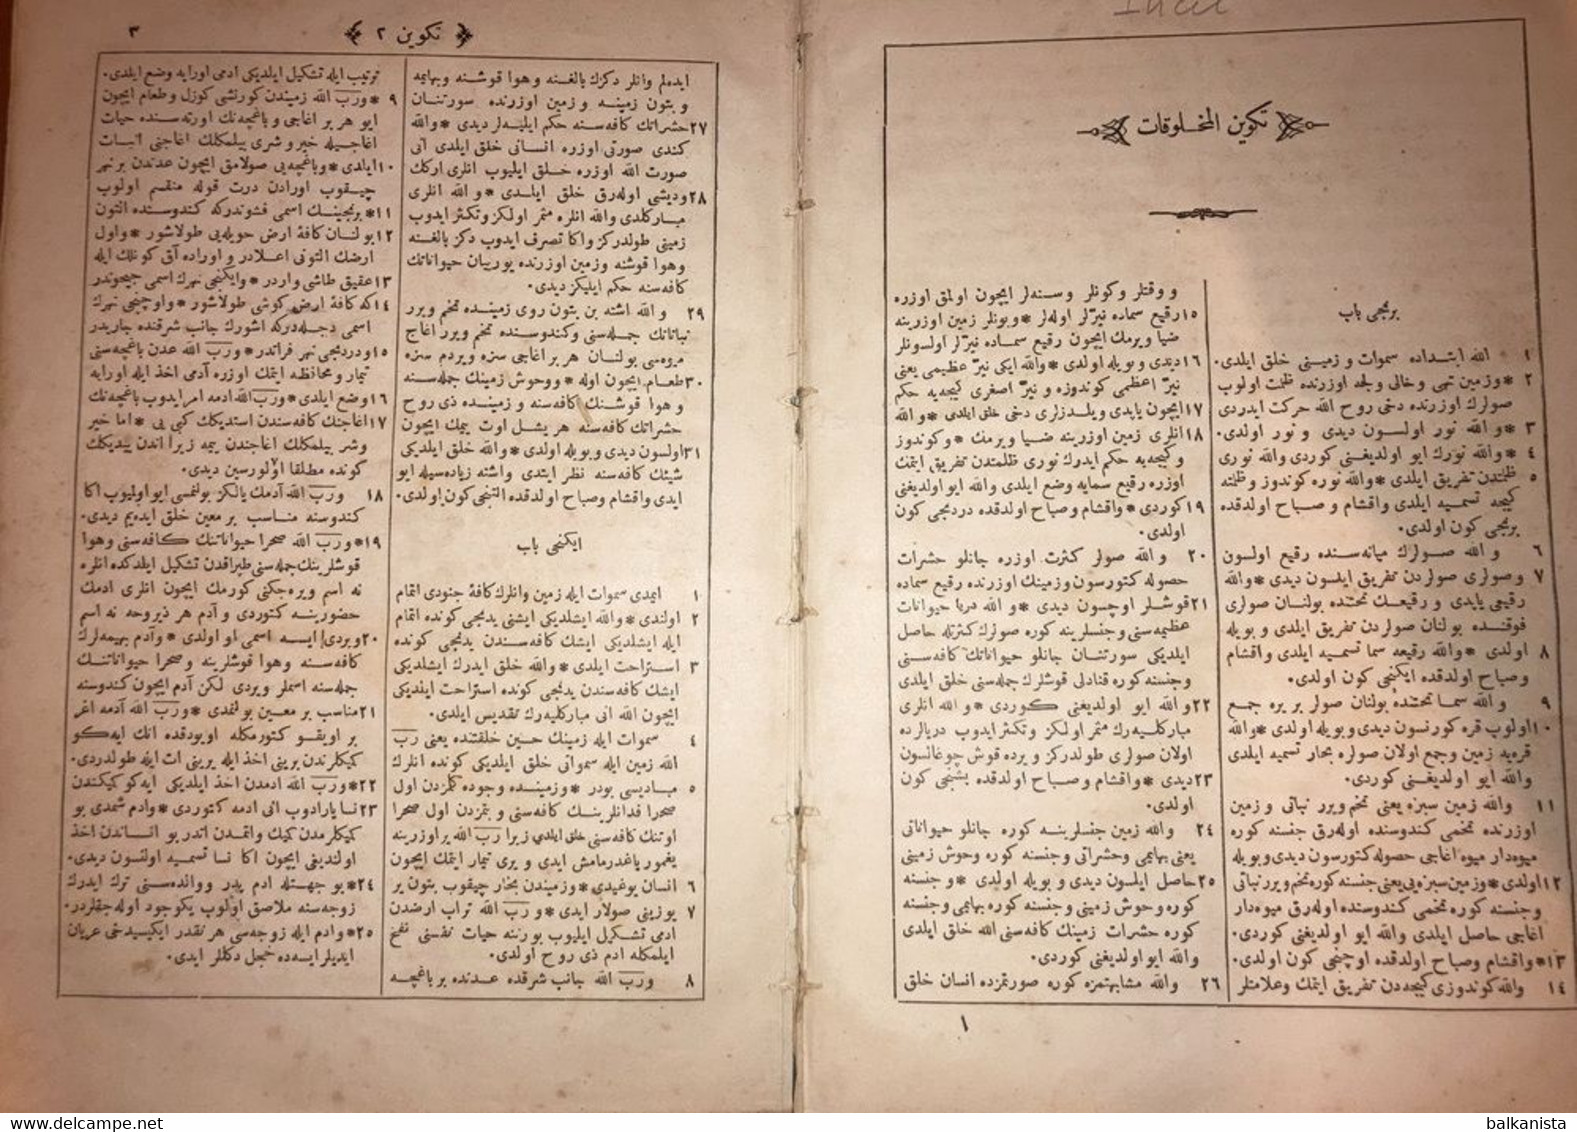 تكوين المخلوقات
برنجی باب
١ الله ابتداده سموات و زمینی خلق ایلدی.
٢ * وزمین تهی و خالی ولجه اوزرنده ظلمت اولوب
صولرك اوزرنده دخی روح الله حركت ایدردی
٣ * و الله نور اولسون دیدی و نور اولدی.
٤ * والله نورك ایو اولدیغنی كوردی والله نوری
٥ ظلمتدن تفریق ایلدی * والله نوره كوندوز و ظلمته
كیجه تسمیه ایلدی واقشام و صباح اولدقده
برنجی كون اولدی.
٦ و الله صولرك میانه‌سنده رقیع اولسون
٧ وصولری صولردن تفریق ایلسون دیدی * والله
رقیعی یاپدی و رقیعك تحتنده بولنان صولری
فوقنده بولنان صولردن تفریق ایلدی و بویله
٨ اولدی * والله رقیعه سما تسمیه ایلدی واقشام
وصباح اولدقده ایكنجی كون اولدی.
٩ و الله سما تحتنده بولنان صولر بر یره جمع
١٠ اولوب قره كورنسون دیدی وبویله اولدی * والله
قره‌یه زمین وجمع اولان صولره بحار تسمیه ایلدی
والله ایو اولدیغنی كوردی.
١١ والله زمین سبزه یعنی تخم ویرر نباتی و زمین
اوزرنده تخمی كندوسنده اوله‌رق جنسنه كوره
میوه‌دار میوه اغاجی حصوله كتورسون دیدی وبویله
١٢ اولدی * وزمین سبزه‌یی یعنی جنسنه كوره تخم ویرر نباتی
و جنسنه كوره تخمی كندوسنده اوله‌رق میوه‌دار
اغاجی حاصل ایلدی والله ایو اولدیغنی كوردی.
١٣ * واقشام وصباح اولدقده اوچنجی كون اولدی.
١٤ والله كوندوزی كیجه‌دن تفریق ایتمك وعلامتلر
و وقتلر و كونلر و سنه‌لر ایچون اولمق اوزره
١٥ رقیع سماده نیرلر اوله‌لر * وبونلر زمین اوزرینه
ضیا ویرمك ایچون رقیع سماده نیرلر اولسونلر
١٦ دیدی و بویله اولدی * والله ایكی نیر عظیمی یعنی
نیر اعظمی كوندوزه و نیر اصغری كیجه‌یه حكم
١٧ ایچون یاپدی ویلدزلری دخی خلق ایلدی * و الله
١٨ انلری زمین اوزرینه ضیا ویرمك * وكوندوز
و كیجه‌یه حكم ایدرك نوری ظلمتدن تفریق ایتمك
اوزره رقیع سمایه وضع ایلدی والله ایو اولدیغنی
١٩ كوردی * واقشام وصباح اولدقده دردنجی كون
اولدی.
٢٠ و الله صولر كثرت اوزره جانلو حشرات
حصوله كتورسون وزمینك اوزرنده رقیع سماده
٢١ قوشلر اوچسون دیدی * و الله دریا حیوانات
عظیمه‌سنی وجنسلرینه كوره صولرك كثرتله حاصل
ایلدیكی سورتنان جانلو حیواناتك كافه‌سنی
وجنسنه كوره قنادلی قوشلرك جمله‌سنی خلق ایلدی
٢٢ والله ایو اولدیغنی كوردی * و الله انلری
مباركلیه‌رك مثمر اولكز وتكثر ایدوب دریالرده
اولان صولری طولدركز ویرده قوش چوغالسون
٢٣ دیدی * واقشام و صباح اولدقده بشنجی كون
اولدی.
٢٤ والله زمین جنسلرینه كوره جانلو حیواناتی
یعنی بهائمی وحشراتی وجنسنه كوره وحوش زمینی
٢٥ حاصل ایلسون دیدی و بویله اولدی * و جنسنه
كوره وحوش زمینی وجنسنه كوره بهائمی وجنسنه
كوره حشرات زمینك كافه‌سنی الله خلق ایلدی
والله ایو اولدیغنی كوردی.
٢٦ والله مشابهتمزه كوره صورتمزده انسان خلق
١
تكوین ٢
٣
ایده‌لم وانلر دكزك بالغنه و هوا قوشنه وبهایمه
و بتون زمینه و زمین اوزرنده سورتنان
٢٧ حشراتك كافه‌سنه حكم ایلیه‌لر دیدی * والله
كندی صورتی اوزره انسانی خلق ایلدی انی
صورت الله اوزره خلق ایلیوب انلری اركك
٢٨ ودیشی اوله‌رق خلق ایلدی * و الله انلری
مباركلدی والله انلره مثمر اولكز وتكثر ایدوب
زمینی طولدركز واكا تصرف ایدوب دكز بالغنه
وهوا قوشنه وزمین اوزرنده یوریيان حیواناتك
كافه‌سنه حكم ایلیكز دیدی.
٢٩ و الله اشته بن بتون روی زمینده تخم ویرر
نباتاتك جمله‌سنی وكندوسنده تخم ویرر اغاج
میوه‌سی بولنان هر بر اغاجی سزه ویردم سزه
٣٠ طعام ایچون اوله * ووحوش زمینك جمله‌سنه
و هوا قوشنك كافه‌سنه و زمینده ذی روح
حشراتك كافه‌سنه هر یشل اوت ییمك ایچون
٣١ اولسون دیدی وبویله اولدی * والله خلق ایلدیكی
شیئك كافه‌سنه نظر ایتدی واشته زیاده‌سیله ایو
ایدی واقشام وصباح اولدقده التنجی كون اولدی.
ایكنجی باب
١ ایمدی سموات ایله زمین وانلرك كافهٔ جنودی اتمام
٢ اولندی * والله ایشلدیكی ایشنی یدنجی كونده اتمام
ایله ایشلدیكی ایشك كافه‌سندن یدنجی كونده
٣ استراحت ایلدی * والله خلق ایدرك ایشلدیكی
ایشك كافه‌سندن یدنجی كونده استراحت ایتدیكی
ایچون الله انی مباركلیه‌رك تقدیس ایلدی.
٤ سموات ایله زمینك حین خلقتنده یعنی رب
الله زمین ایله سمواتی خلق ایلدیكی كونده انلرك
٥ مبادیسی بودر * وزمینده وجوده كلمزدن اول
صحرا فدانلرینك كافه‌سنی و بتمزدن اول صحرا
اوتنك كافه‌سنی خلق ایلدی زیرا رب الله یر اوزرینه
یغمور یاغدرمامش ایدی و یری تیمار ایتمك ایچون
٦ انسان یوغیدی * وزمیندن بخار چیقوب بتون یر
٧ یوزینی صولار ایدی * و رب الله تراب ارضدن
ادمی تشكیل ایلیوب بورننه حیات نفسنی نفخ
ایلمكله ادم ذی روح اولدی.
٨ و رب الله جانب شرقده عدنده بر باغچه
ترتیب ایله تشكیل ایلدیكی ادمی اورایه وضع ایلدی.
٩ * ورب الله زمیندن كورنشی كوزل و طعام ایچون
ایو هر بر اغاجی و باغچه‌نك اورته‌سنده حیات
اغاجیله خیر و شری بیلمكلك اغاجنی انبات
١٠ ایلدی * وباغچه‌یی صولامق ایچون عدندن بر نهر
چیقوب اورادن درت قوله منقسم اولوب
١١ * برنجینك اسمی فیشوندركه كندوسنده التون
١٢ بولنان كافهٔ ارض حویله‌یی طولاشور * واول
ارضك التونی اعلادر و اوراده آق كونلك ایله
١٣ عقیق طاشی واردر * وایكنجی نهرك اسمی جیحوندر
١٤ كه كافهٔ ارض كوشی طولاشور * واوچنجی نهرك
اسمی دجله‌دركه اشورك جانب شرقنده جاریدر
١٥ ودردنجی نهر فراتدر * ورب الله عدن باغچه‌سنی
تیمار و محافظه ایتمك اوزره آدمی اخذ ایله اورایه
١٦ وضع ایلدی * ورب الله ادمه امر ایدوب باغچه‌نك
١٧ اغاجنك كافه‌سندن استدیكك كبی یی * اما خیر
وشر بیلمكلك اغاجندن ییمه زیرا اندن ییدیكك
كونده مطلقا اولورسین دیدی.
١٨ و رب الله آدمك یالكز بولنمسی ایو اولمیوب اكا
كندوسنه مناسب بر معین خلق ایده‌یم دیدی.
١٩ * و رب الله صحرا حیواناتنك كافه‌سنی وهوا
قوشلرینك جمله‌سنی طپراقدن تشكیل ایلدكده انلره
نه اسم ویره‌جكنی كورمك ایچون انلری ادمك
حضورینه كتوردی و آدم هر ذیروحه نه اسم
٢٠ ویردی ایسه اسمی او اولدی * وآدم بهیمه‌لرك
كافه‌سنه وهوا قوشلرینه و صحرا حیواناتنك
جمله‌سنه اسملر ویردی لكن آدم ایچون كندوسنه
٢١ مناسب بر معین بولنمدی * ورب الله آدمه اغر
بر اویقو كتورمكله اویودقده انك ایه‌كو
كمیكلرندن برینی اخذ ایله یرینی ات ایله طولدردی.
٢٢ * ورب الله ادمدن اخذ ایلدیكی ایه‌كو كمیكندن
٢٣ نسا یارادوب انی ادمه كتوردی * وادم شمدی بو
كمیكلرمدن كمیك واتمدن اتدر بو انساندن اخذ
اولندیغی ایچون اكا نسا تسمیه اولنسون دیدی.
٢٤ * بو جهتله ادم پدر و والده‌سنی ترك ایدرك
زوجه‌سنه ملاصق اولوب یكوجود اوله‌جقلردر.
٢٥ * وادم ایله زوجه‌سی هر نقدر ایكیسیدخی عریان
ایدیلر ایسه‌ده خجل دكللر ایدی.
balkanista